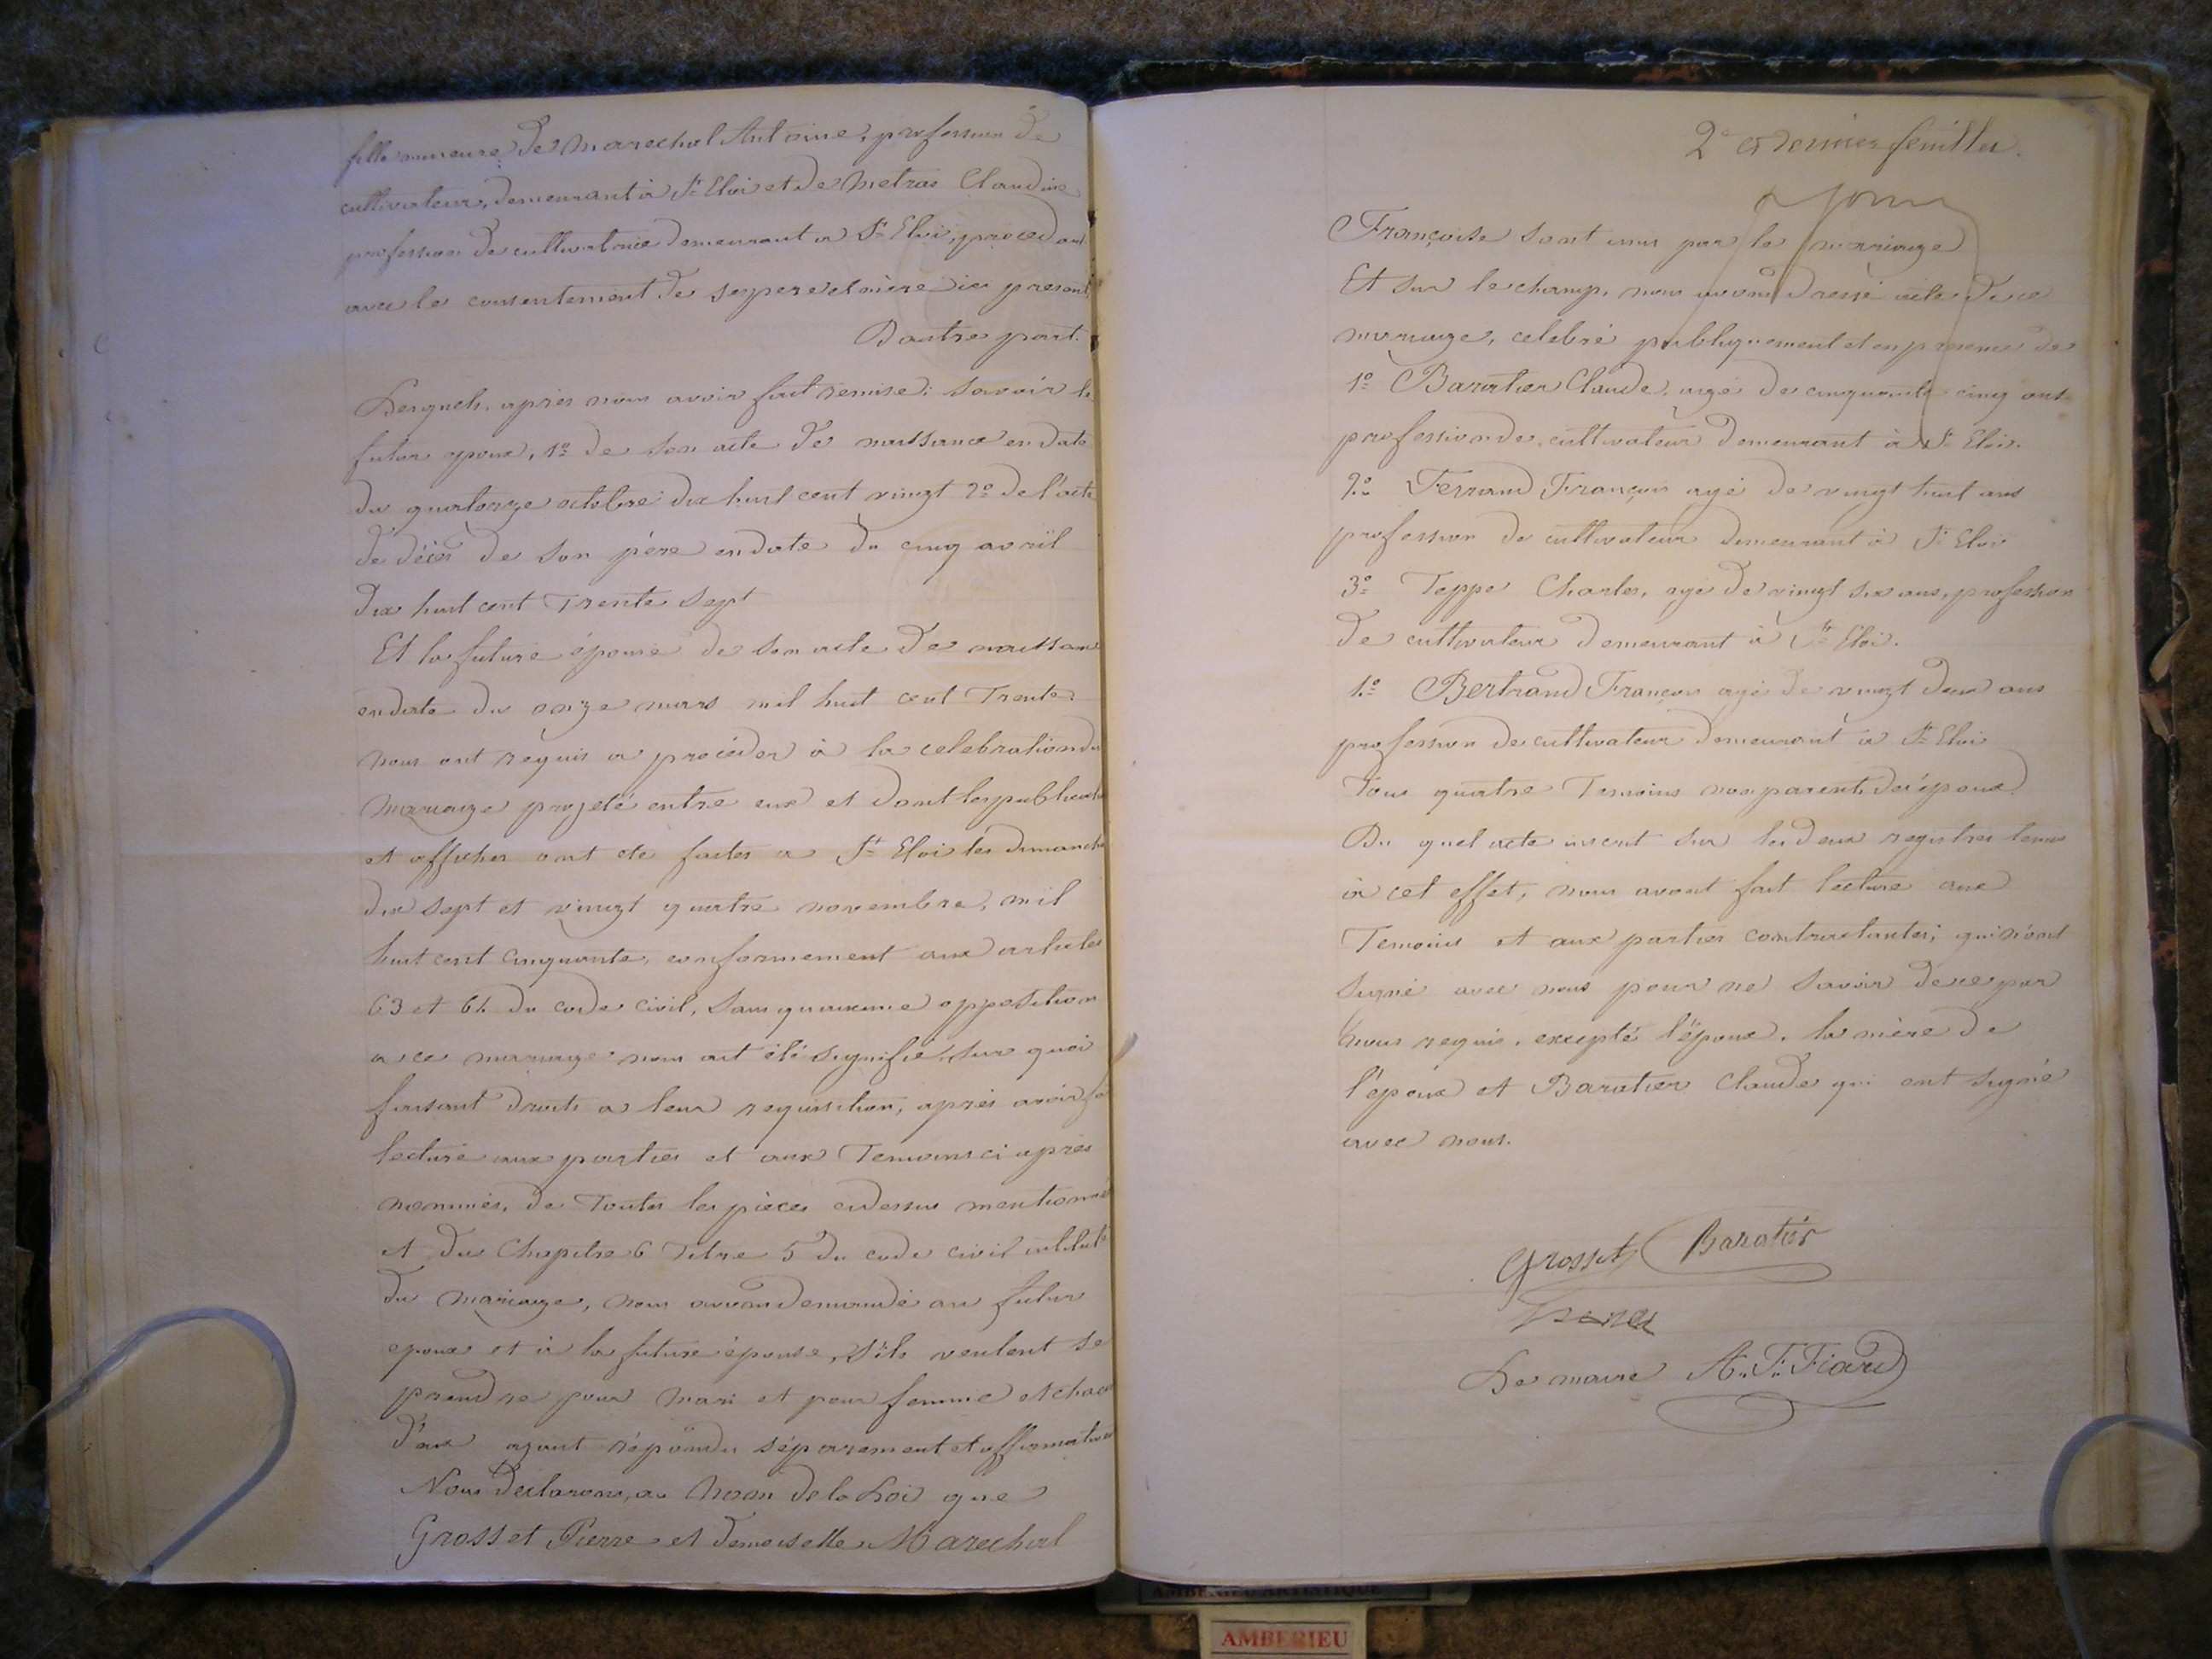 fille mineure de Marechal Antoine, profession de
cultivateur, demeurant à St Eloi et de Metras Claudine
profession de cultivatrice demeurant a St Eloi, procedant
avec le consentement de ses pere et mère ici present
Dautre part.
Lesquels, après nous avoir fait remise: savoir le
futur epoux, 1o de son acte de naissance en date
du quatorze octobre dix huit cent vingt 2o de l'acte
de décès de son père en date du cinq avril
dix huit cent Trente sept
Et la future épouse de son acte de naissan
en date du onze mars mil huit cent Trente
nous ont requis a procéder à la celebration du
Mariage projeté entre eux et dont les publicat
et affiches ont ete faites a St Eloi les dimanche
dix sept et vingt quatre novembre, mil
huit cent cinquante, conformement aux articles
63 et 64 du code civil, sans qu'aucune opposition
a ce mariage nous ait été signifié, sur quoi
faisant droit a leur requisition, après avoir fa
lecture aux parties et aux Temoins ci après
nommés, de Toutes les pièces ci dessus mentionné
et du Chapitre 6 Titre 5 du code civil intitulé
Du Mariage, nous avons demandé au futur
epoux et à la future épouse, s'ils veulent se
prendre pour mari et pour femme et chacu
d'eux ayant répondu séparement et affirmative
Nous declarons, au Nom de la Loi que
Grosset Pierre et demoiselle Marechal
2e et dernier feuillet.
Françoise sont unis par le mariage
Et sur le champ, nous avons dressé acte de ce
mariage, celebré publiquement et en presence de
1o Baratier Claude, agé de cinquante cinq ans
profession de cultivateur demeurant à St Eloi.
2o Ferrand François agé de vingt huit ans
profession de cultivateur demeurant à St Eloi
3o Teppe Charles, agé de vingt six ans, profession
de cultivateur demeurant à St Eloi.
4o Bertrand François agé de vingt deux ans
profession de cultivateur demeurant à St Eloi
Tous quatre Temoins non parents des époux
Du quel acte inscrit sur les deux registres tenus
à cet effet, nous avont fait lecture aux
Temoins et aux parties contractantes; qui n'ont
signé avec nous pour ne savoir de ce par
nous requis, excepté l'époux, la mère de
l'epoux et Baratier Claude qui ont signé
avec nous.
Grosset Baratier
Le maire A. F. Fiard
AMBERIEU